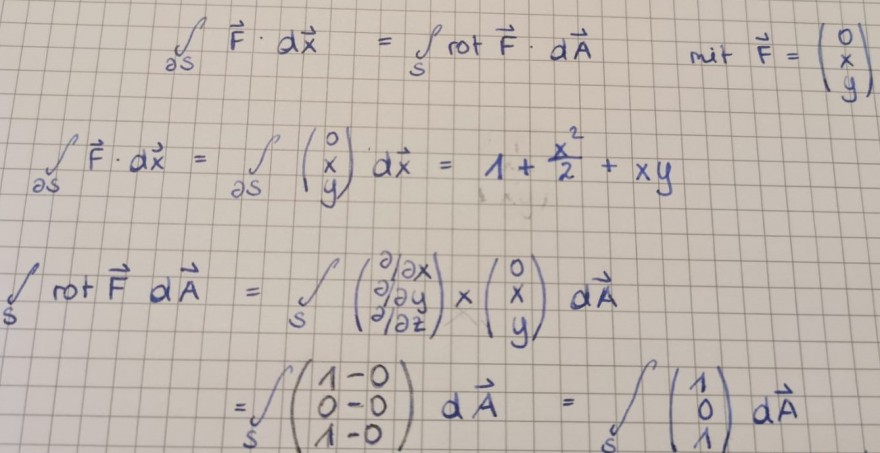 ∫∂S F⃗ · dx⃗ = ∫S rot F⃗ · dA⃗ mit F⃗ = (0 x y)
∫∂S F⃗ · dx⃗ = ∫∂S (0 x y) dx⃗ = 1 + x²/2 + xy
∫S rot F⃗ dA⃗ = ∫S (∂/∂x ∂/∂y ∂/∂z) × (0 x y) dA⃗
= ∫S (1-0 0-0 1-0) dA⃗ = ∫S (1 0 1) dA⃗